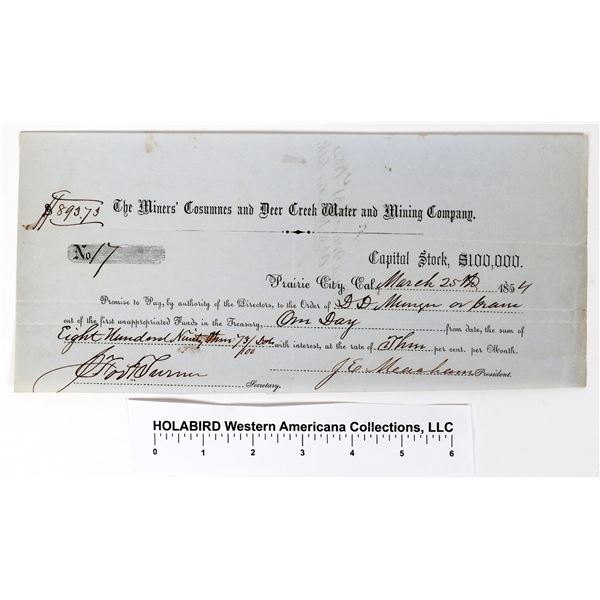 $893.73 The Miners' Cosumnes and Deer Creek Water and Mining Company.
No 17
Capital Stock, $100,000.
Prairie City, Cal. March 25th 1854
Promise to Pay, by authority of the Directors, to the Order of D. D. Munger or
out of the first unappropriated Funds in the Treasury, One Day from date, the sum of
Eight Hundred Ninty three 73/100 Dol with interest, at the rate of Three per cent. per Month.
Turner Secretary. J. E. Meacham President.
HOLABIRD Western Americana Collections, LLC
0 1 2 3 4 5 6